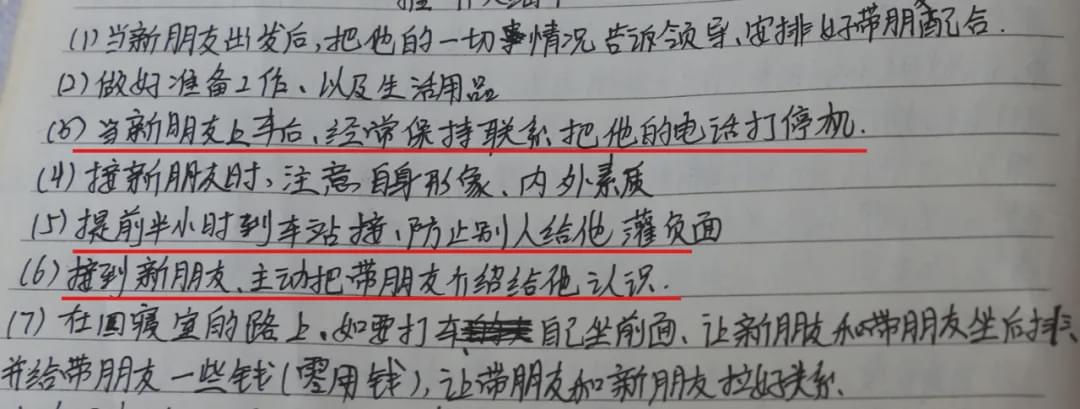 (1)当新朋友出发后,把他的一切事情况告诉领导、安排好带朋配合.
(2)做好准备工作、以及生活用品
(3)当新朋友上车后、经常保持联系、把他的电话打停机.
(4)接新朋友时、注意自身形象、内外素质
(5)提前半小时到车站接、防止别人给他灌负面
(6)接到新朋友、主动把带朋友介绍给他认识.
(7)在回寝室的路上、如要打车自己坐前面、让新朋友和带朋友坐后排、
并给带朋友一些钱(零用钱),让带朋友和新朋友拉好关系、